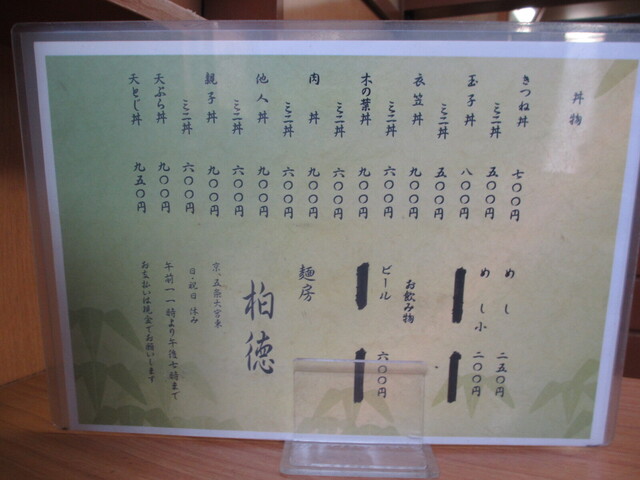 丼物
きつね丼 七〇〇円
ミニ丼 五〇〇円
玉子丼 八〇〇円
ミニ丼 五〇〇円
衣笠丼 九〇〇円
ミニ丼 六〇〇円
木の葉丼 九〇〇円
ミニ丼 六〇〇円
肉丼 九〇〇円
ミニ丼 六〇〇円
他人丼 九〇〇円
ミニ丼 六〇〇円
親子丼 九〇〇円
ミニ丼 六〇〇円
天ぷら丼 九〇〇円
天とじ丼 九五〇円
めし 二五〇円
めし小 二〇〇円
お飲み物
ビール 六〇〇円
麺房
柏徳
京、五条大宮東
日・祝日 休み
午前一一時より午後七時まで
お支払いは現金でお願いします